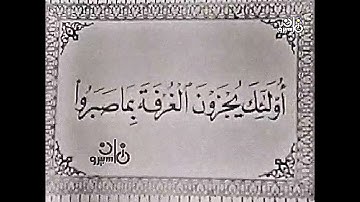 أُولَٰئِكَ يُجْزَوْنَ الْغُرْفَةَ بِمَا صَبَرُوا